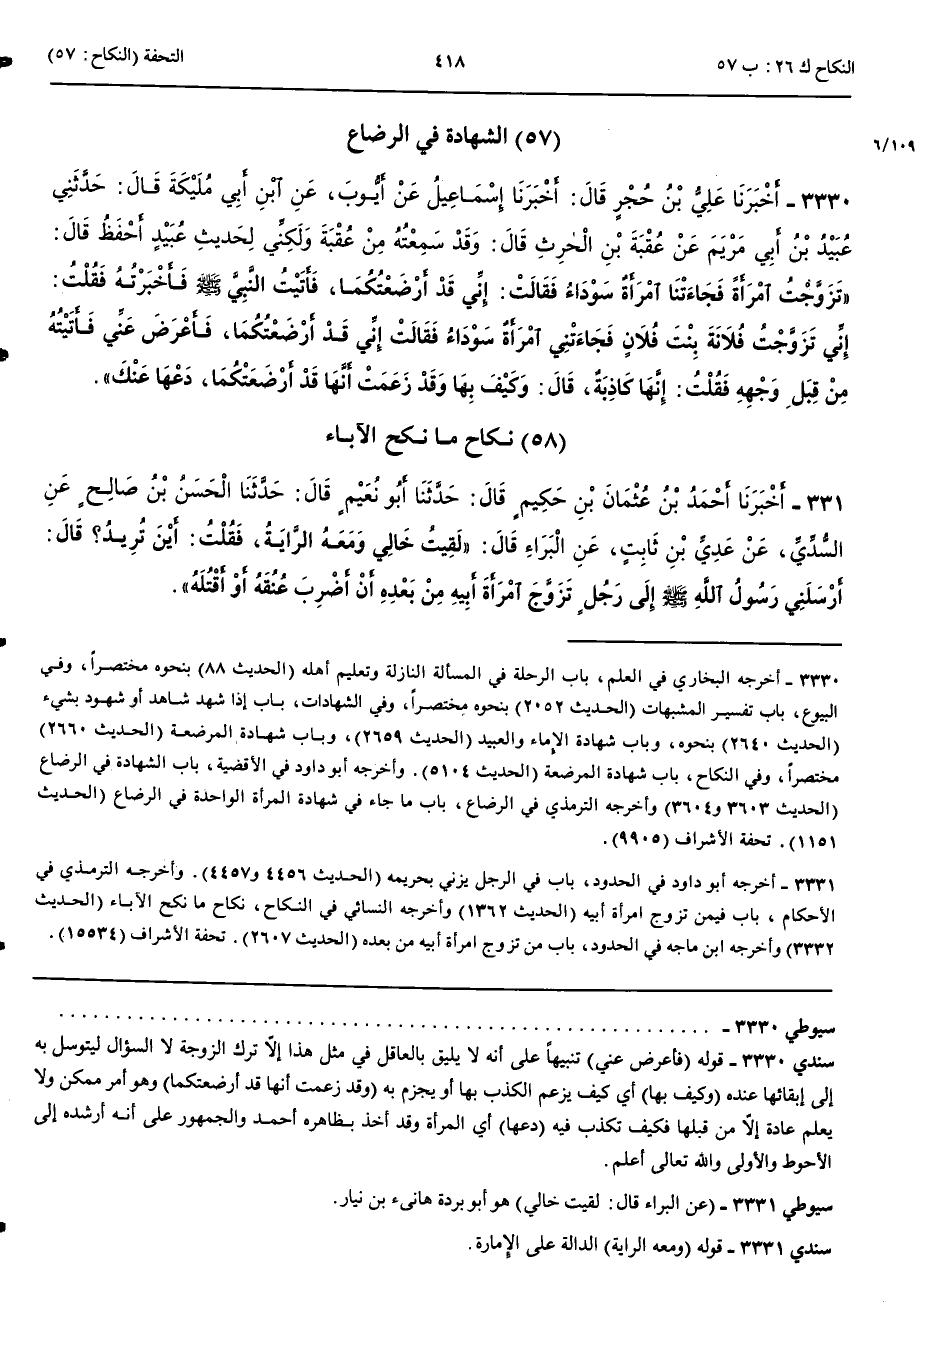 النكاح ك ٢٦: ب ٥٧
٤١٨
التحفة (النكاح: ٥٧)
٦/١٠٩
(٥٧) الشهادة في الرضاع
٣٣٣٠ - أَخْبَرَنَا عَلِيُّ بْنُ حُجْرٍ قَالَ: أَخْبَرَنَا إِسْمَاعِيلُ عَنْ أَيُّوبَ، عَنِ ٱبْنِ أَبِي مُلَيْكَةَ قَالَ: حَدَّثَنِي
عُبَيْدُ بْنُ أَبِي مَرْيَمَ عَنْ عُقْبَةَ بْنِ الْحٰرِثِ قَالَ: وَقَدْ سَمِعْتُهُ مِنْ عُقْبَةَ وَلَكِنِّي لِحَدِيثِ عُبَيْدٍ أَحْفَظُ قَالَ:
«تَزَوَّجْتُ ٱمْرَأَةً فَجَاءَتْنَا ٱمْرَأَةٌ سَوْدَاءُ فَقَالَتْ: إِنِّي قَدْ أَرْضَعْتُكُمَا، فَأَتَيْتُ النَّبِيَّ ﷺ فَأَخْبَرْتُهُ فَقُلْتُ:
إِنِّي تَزَوَّجْتُ فُلَانَةَ بِنْتَ فُلَانٍ فَجَاءَتْنِي ٱمْرَأَةٌ سَوْدَاءُ فَقَالَتْ إِنِّي قَدْ أَرْضَعْتُكُمَا، فَأَعْرَضَ عَنِّي فَأَتَيْتُهُ
مِنْ قِبَلِ وَجْهِهِ فَقُلْتُ: إِنَّهَا كَاذِبَةٌ، قَالَ: وَكَيْفَ بِهَا وَقَدْ زَعَمَتْ أَنَّهَا قَدْ أَرْضَعَتْكُمَا، دَعْهَا عَنْكَ».
(٥٨) نكاح ما نكح الآباء
٣٣١ - أَخْبَرَنَا أَحْمَدُ بْنُ عُثْمَانَ بْنِ حَكِيمٍ قَالَ: حَدَّثَنَا أَبُو نُعَيْمٍ قَالَ: حَدَّثَنَا الْحَسَنُ بْنُ صَالِحٍ عَنِ
السُّدِّيِّ، عَنْ عَدِيِّ بْنِ ثَابِتٍ، عَنِ الْبَرَاءِ قَالَ: «لَقِيتُ خَالِي وَمَعَهُ الرَّايَةُ، فَقُلْتُ: أَيْنَ تُرِيدُ؟ قَالَ:
أَرْسَلَنِي رَسُولُ ٱللَّهِ ﷺ إِلَى رَجُلٍ تَزَوَّجَ ٱمْرَأَةَ أَبِيهِ مِنْ بَعْدِهِ أَنْ أَضْرِبَ عُنُقَهُ أَوْ أَقْتُلَهُ».
٣٣٣٠ - أخرجه البخاري في العلم، باب الرحلة في المسألة النازلة وتعليم أهله (الحديث ٨٨) بنحوه مختصراً، وفي
البيوع، باب تفسير المشبهات (الحديث ٢٠٥٢) بنحوه مختصراً، وفي الشهادات، باب إذا شهد شاهد أو شهود بشيء
(الحديث ٢٦٤٠) بنحوه، وباب شهادة الإماء والعبيد (الحديث ٢٦٥٩)، وباب شهادة المرضعة (الحديث ٢٦٦٠)
مختصراً، وفي النكاح، باب شهادة المرضعة (الحديث ٥١٠٤). وأخرجه أبو داود في الأقضية، باب الشهادة في الرضاع
(الحديث ٣٦٠٣ و٣٦٠٤) وأخرجه الترمذي في الرضاع، باب ما جاء في شهادة المرأة الواحدة في الرضاع (الحديث
١١٥١). تحفة الأشراف (٩٩٠٥).
٣٣٣١ - أخرجه أبو داود في الحدود، باب في الرجل يزني بحريمه (الحديث ٤٤٥٦ و٤٤٥٧). وأخرجه الترمذي في
الأحكام، باب فيمن تزوج امرأة أبيه (الحديث ١٣٦٢) وأخرجه النسائي في النكاح، نكاح ما نكح الآباء (الحديث
٣٣٣٢) وأخرجه ابن ماجه في الحدود، باب من تزوج امرأة أبيه من بعده (الحديث ٢٦٠٧). تحفة الأشراف (١٥٥٣٤).
سيوطي ٣٣٣٠ - . . . . . . . . . . . . . . . . . . . . . . . . . . . . . .
سندي ٣٣٣٠ - قوله (فأعرض عني) تنبيهاً على أنه لا يليق بالعاقل في مثل هذا إلّا ترك الزوجة لا السؤال ليتوسل به
إلى إبقائها عنده (وكيف بها) أي كيف يزعم الكذب بها أو يجزم به (وقد زعمت أنها قد أرضعتكما) وهو أمر ممكن ولا
يعلم عادة إلّا من قبلها فكيف تكذب فيه (دعها) أي المرأة وقد أخذ بظاهره أحمد والجمهور على أنه أرشده إلى
الأحوط والأولى والله تعالى أعلم.
سيوطي ٣٣٣١ - (عن البراء قال: لقيت خالي) هو أبو بردة هانىء بن نيار.
سندي ٣٣٣١ - قوله (ومعه الراية) الدالة على الإمارة.